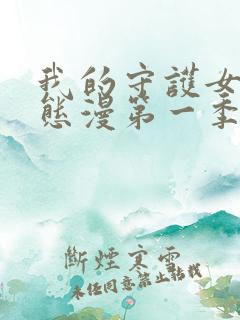 我的守護女
態漫第一季
斷煙寒雲
未经同意禁止转载